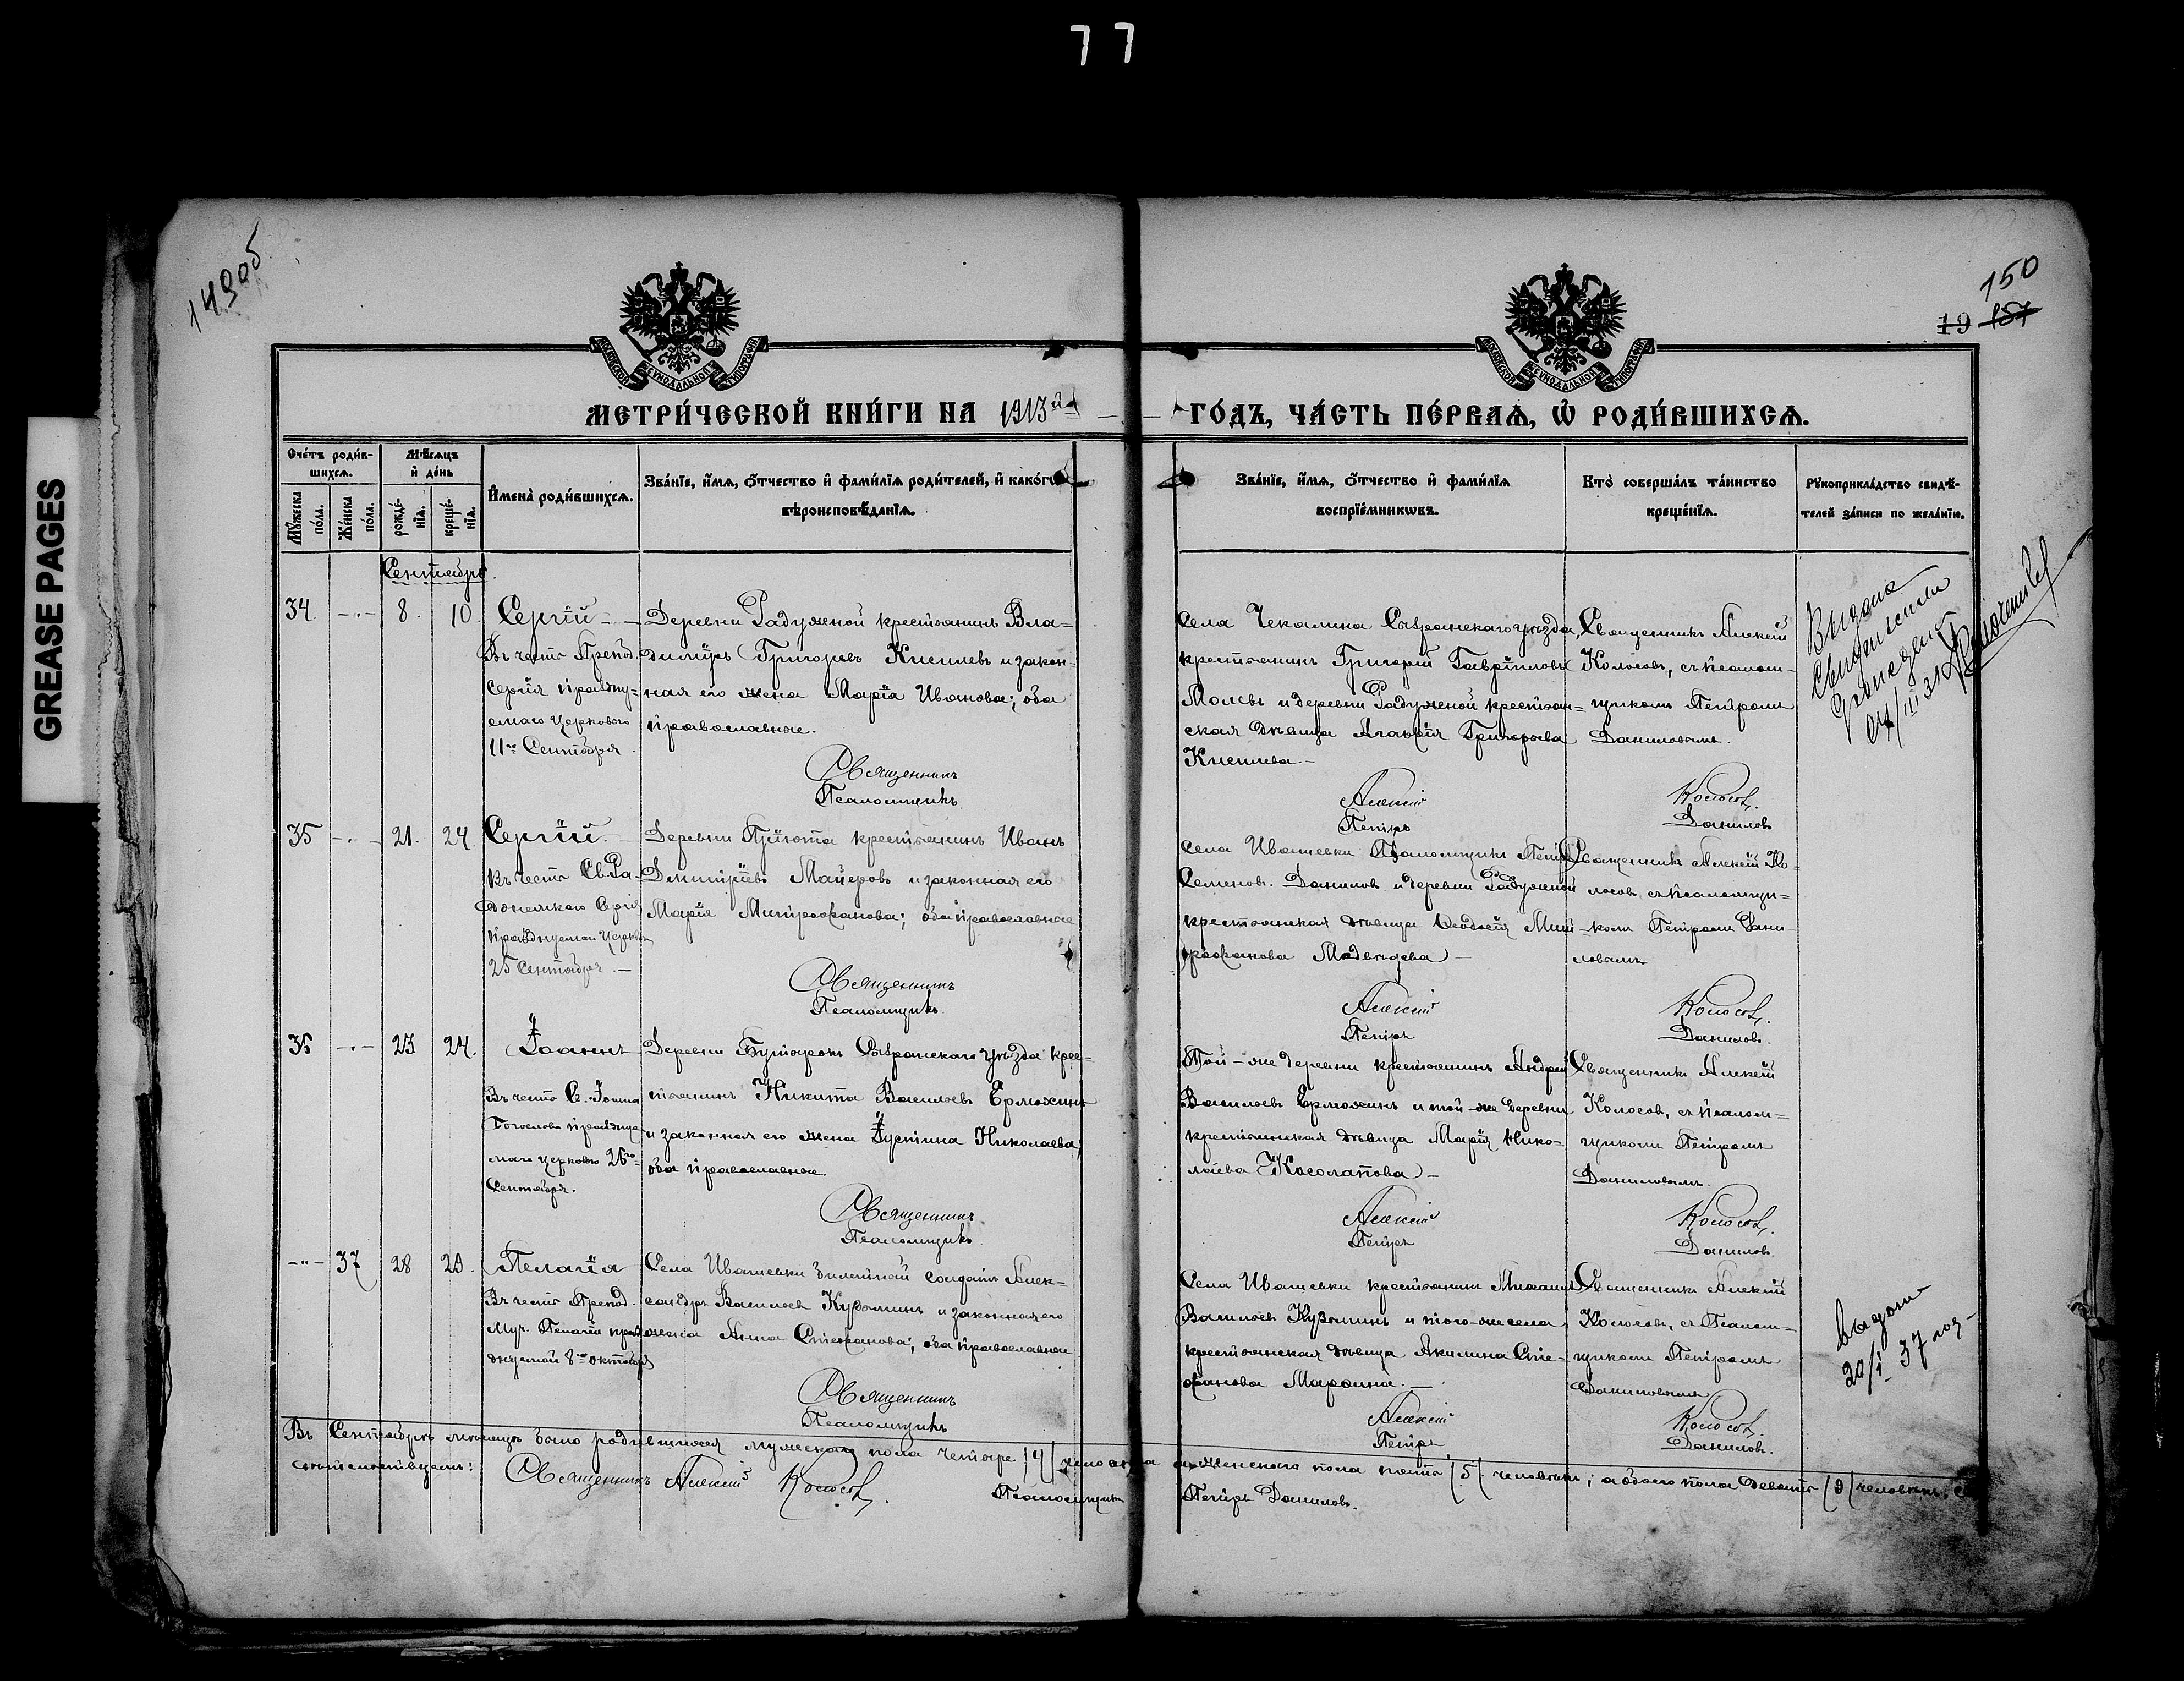 77
GREASE PAGES
149об
150
19 157
МЕТРИ́ЧЕСКОЙ КНИ́ГИ НА 1913й ГО́ДЪ, ЧА́СТЬ ПЕ́РВАѦ, Ѡ҆ РОДИ́ВШИХСѦ.
Сче́тъ роди́в-
шихсѧ.
Мꙋ́жеска по́ла.
Же́нска по́ла.
Мѣ́сѧцъ
и҆ де́нь
рожде́-
нїѧ.
креще́-
нїѧ.
И҆мена̀ роди́вшихсѧ.
Зва́нїе, и҆́мѧ, ѻ҆́тчество и҆ фами́лїѧ роди́телей, и҆ како́гѡ
вѣроисповѣ́данїѧ.
Зва́нїе, и҆́мѧ, ѻ҆́тчество и҆ фами́лїѧ
воспрїе́мникѡвъ.
Кто̀ соверша́лъ та́инство
креще́нїѧ.
Рꙋкоприкла́дство свидѣ́-
телей за́писи по жела́нїю.
Сентябрь.
34. -"- 8. 10.
Сергій
Въ честь Препод.
Сергія праздну-
емаго Церковію
11го Сентября.
Деревни Радужной крестьянинъ Вла-
димiръ Григорьевъ Киселевъ и закон-
ная его жена Марія Иванова; оба
православные.
Священникъ
Псаломщикъ
Села Чекалина Сызранскаго уѣзда,
крестьянинъ Григорій Гавріиловъ
и деревни Радужной крестьян-
ская дѣвица Григорьева
Киселева.
Алексій
Петръ
Священникъ Алексій
Колосовъ, съ псалом-
щикомъ Петромъ
Даниловымъ.
Колосовъ.
Даниловъ
Выдана
04/III 31
35 -"- 21. 24
Сергій.
въ честь Св. Ра-
донежскаго Сергія
празднуемаго Церковію
25 Сентября.
Деревни крестьянинъ Иванъ
Дмитріевъ Майоровъ и законная его
Марія Митрофанова; оба православные
Священникъ
Псаломщикъ.
Села Ивашевки Псаломщикъ Петръ
Семеновъ Даниловъ и деревни Радужной
крестьянская дѣвица Мит-
рофанова Медвѣдева
Алексій
Петръ
Священникъ Алексій Ко-
лосовъ, съ псаломщи-
комъ Петромъ Дани-
ловымъ
Колосовъ.
Даниловъ.
36 -"- 23 24.
Іоаннъ
Въ честь Св. Іоанна
Богослова празднуе-
маго церковію 26го
Сентября.
Деревни Сызранскаго уѣзда крес-
тьянинъ Никита Васильевъ Ермохинъ
и законная его жена Іустина Николаева;
оба православные
Священникъ
Псаломщикъ
Той-же деревни крестьянинъ Андрей
Васильевъ Ермохинъ и той-же деревни
крестьянская дѣвица Марія Нико-
лаева Косолапова
Алексій
Петръ
Священникъ Алексій
Колосовъ, съ псалом-
щикомъ Петромъ
Даниловымъ.
Колосовъ.
Даниловъ.
-"- 37 28 29.
Пелагія
Въ честь Препод.
Муч. Пелагіи праз-
днуемой 8го октября
Села Ивашевки солдатъ Алек-
сандръ Васильевъ Кузьминъ и законная его
жена Анна Стефанова; оба православные
Священникъ
Псаломщикъ
Села Ивашевки крестьянинъ Михаилъ
Васильевъ Кузьминъ и того-же села
крестьянская дѣвица Акилина Сте-
фанова
Алексій
Петръ
Священникъ Алексій
Колосовъ, съ Псалом-
щикомъ Петромъ
Даниловымъ
Колосовъ.
Даниловъ.
Выдан
20/I 37 год
Въ Сентябрѣ мѣсяцѣ было родившихся мужескаго пола четыре /4/ человѣка и женскаго пола пять /5/ человѣкъ; а обоего пола девять /9/ человѣкъ;
Священникъ Алексій Колосовъ. Псаломщикъ Петръ Даниловъ.